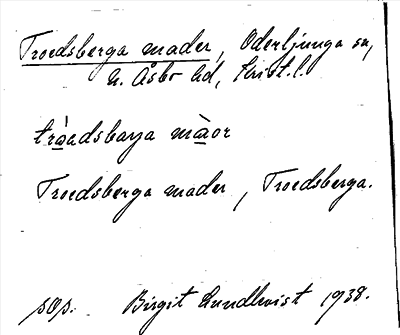 Troedsberga mader, Oderljunga sn,
N. Åsbo hd, Krist. l.
tròadsbarja màor
Troedsberga mader, Troedsberga.
sœs. Birgit Lundkvist 1938.